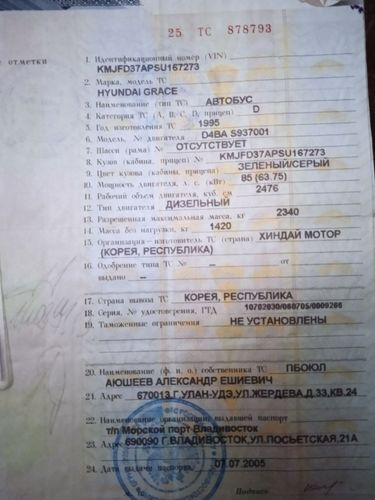 25 ТС 878793
е отметки
1. Идентификационный номер (VIN)
KMJFD37APSU167273
2. Марка, модель ТС
HYUNDAI GRACE
3. Наименование (тип ТС) АВТОБУС
4. Категория ТС (A, B, C, D, прицеп) D
5. Год изготовления ТС 1995
6. Модель, № двигателя D4BA S937001
7. Шасси (рама) № ОТСУТСТВУЕТ
8. Кузов (кабина, прицеп) № KMJFD37APSU167273
9. Цвет кузова (кабины, прицепа) ЗЕЛЕНЫЙ/СЕРЫЙ
10. Мощность двигателя, л. с. (кВт) 85 (63.75)
11. Рабочий объем двигателя, куб. см 2476
12. Тип двигателя ДИЗЕЛЬНЫЙ
13. Разрешенная максимальная масса, кг 2340
14. Масса без нагрузки, кг 1420
15. Организация – изготовитель ТС (страна) ХИНДАЙ МОТОР
(КОРЕЯ, РЕСПУБЛИКА)
16. Одобрение типа ТС № –
выдано –
17. Страна вывоза ТС КОРЕЯ, РЕСПУБЛИКА
18. Серия, № удостоверения, ГТД 10702030/060705/0009266
19. Таможенные ограничения НЕ УСТАНОВЛЕНЫ
20. Наименование (ф. и. о.) собственника ТС ПБОЮЛ
АЮШЕЕВ АЛЕКСАНДР ЕШИЕВИЧ
21. Адрес 670013,Г.УЛАН-УДЭ,УЛ.ЖЕРДЕВА,Д.33,КВ.24
22. Наименование организации, выдавшей паспорт
т/п Морской порт Владивосток
23. Адрес 690090 Г.ВЛАДИВОСТОК,УЛ.ПОСЬЕТСКАЯ,21А
24. Дата выдачи паспорта 07.07.2005
Подпись